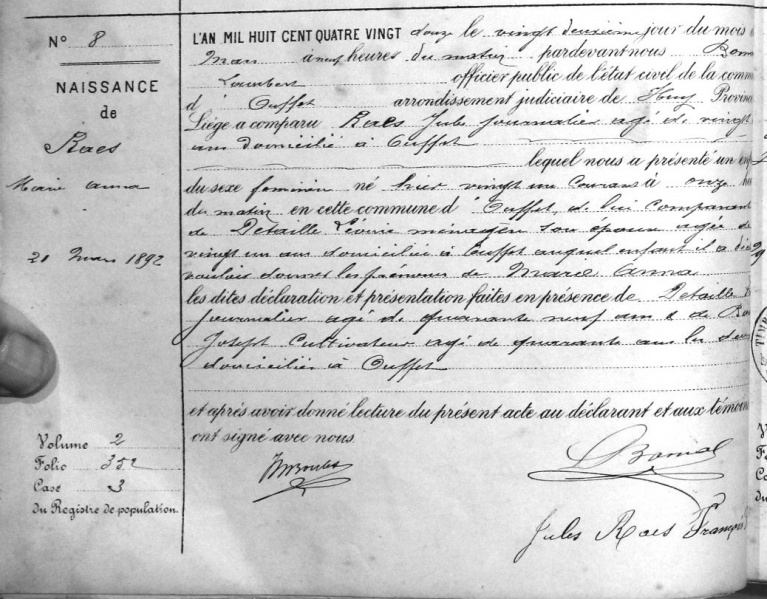 N° 8
NAISSANCE
de
Raes
Marie Anna
21 Mars 1892
Volume 2
Folio 352
Case 3
du Registre de population.
L'AN MIL HUIT CENT QUATRE VINGT douze le vingt deuxième jour du mois
Mars à neuf heures du matin pardevant nous Bom
Lambert officier public de l'état civil de la comm
d'Ouffet arrondissement judiciaire de Huy Provin
Liége a comparu Raes Jules journalier agé de vingt
ans domicilié à Ouffet
lequel nous a présenté un en
du sexe feminin né hier vingt un courant à onze h
du matin en cette commune d'Ouffet, de lui comparant
de Detaille Léonie ménagère son épouse agée de
vingt un ans domiciliée à Ouffet auquel enfant il a dé
vouloir donner les prénoms de Marie Anna
les dites déclaration et présentation faites en présence de Detaille
journalier agé de quarante neuf ans & de Bo
Joseph Cultivateur agé de quarante ans les deux
domiciliés à Ouffet
et après avoir donné lecture du présent acte au déclarant et aux témoin
ont signé avec nous.
L Bomal
Jules Raes François